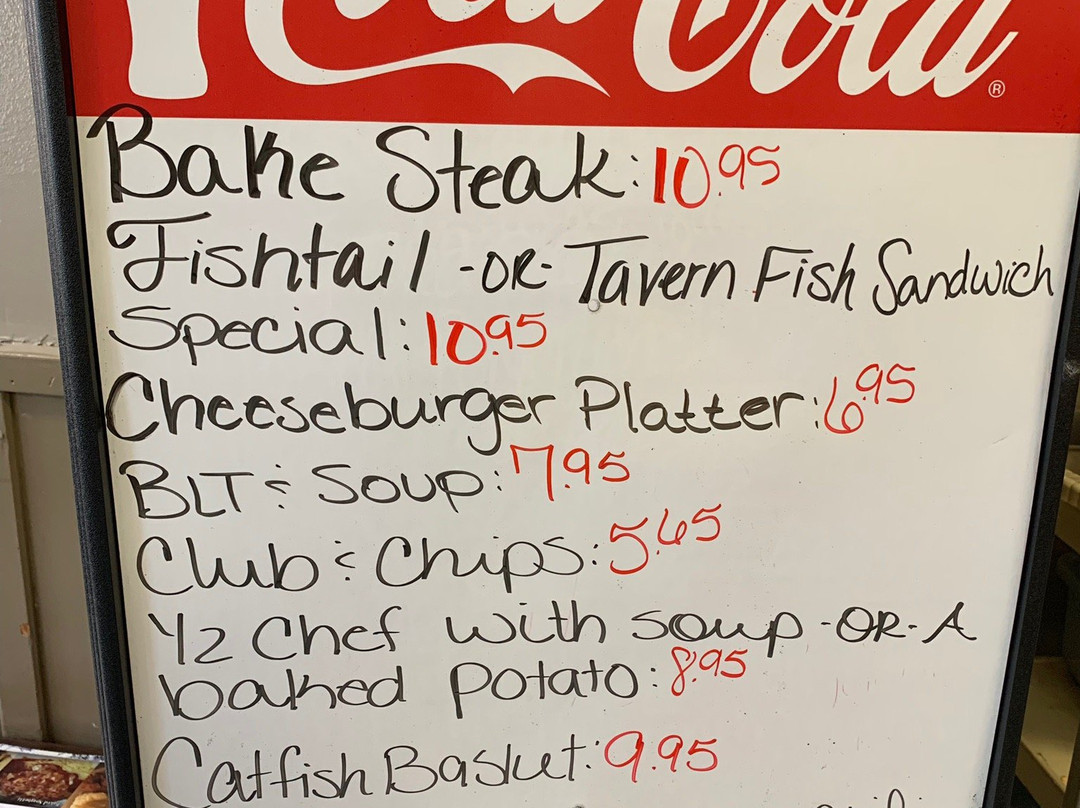 Coca Cola®
Bake Steak: 10.95
Fishtail -OR- Tavern Fish Sandwich
Special: 10.95
Cheeseburger Platter: 6.95
BLT & Soup: 7.95
Club & Chips: 5.65
1/2 Chef with soup -OR- A
baked potato: 8.95
Catfish Basket: 9.95